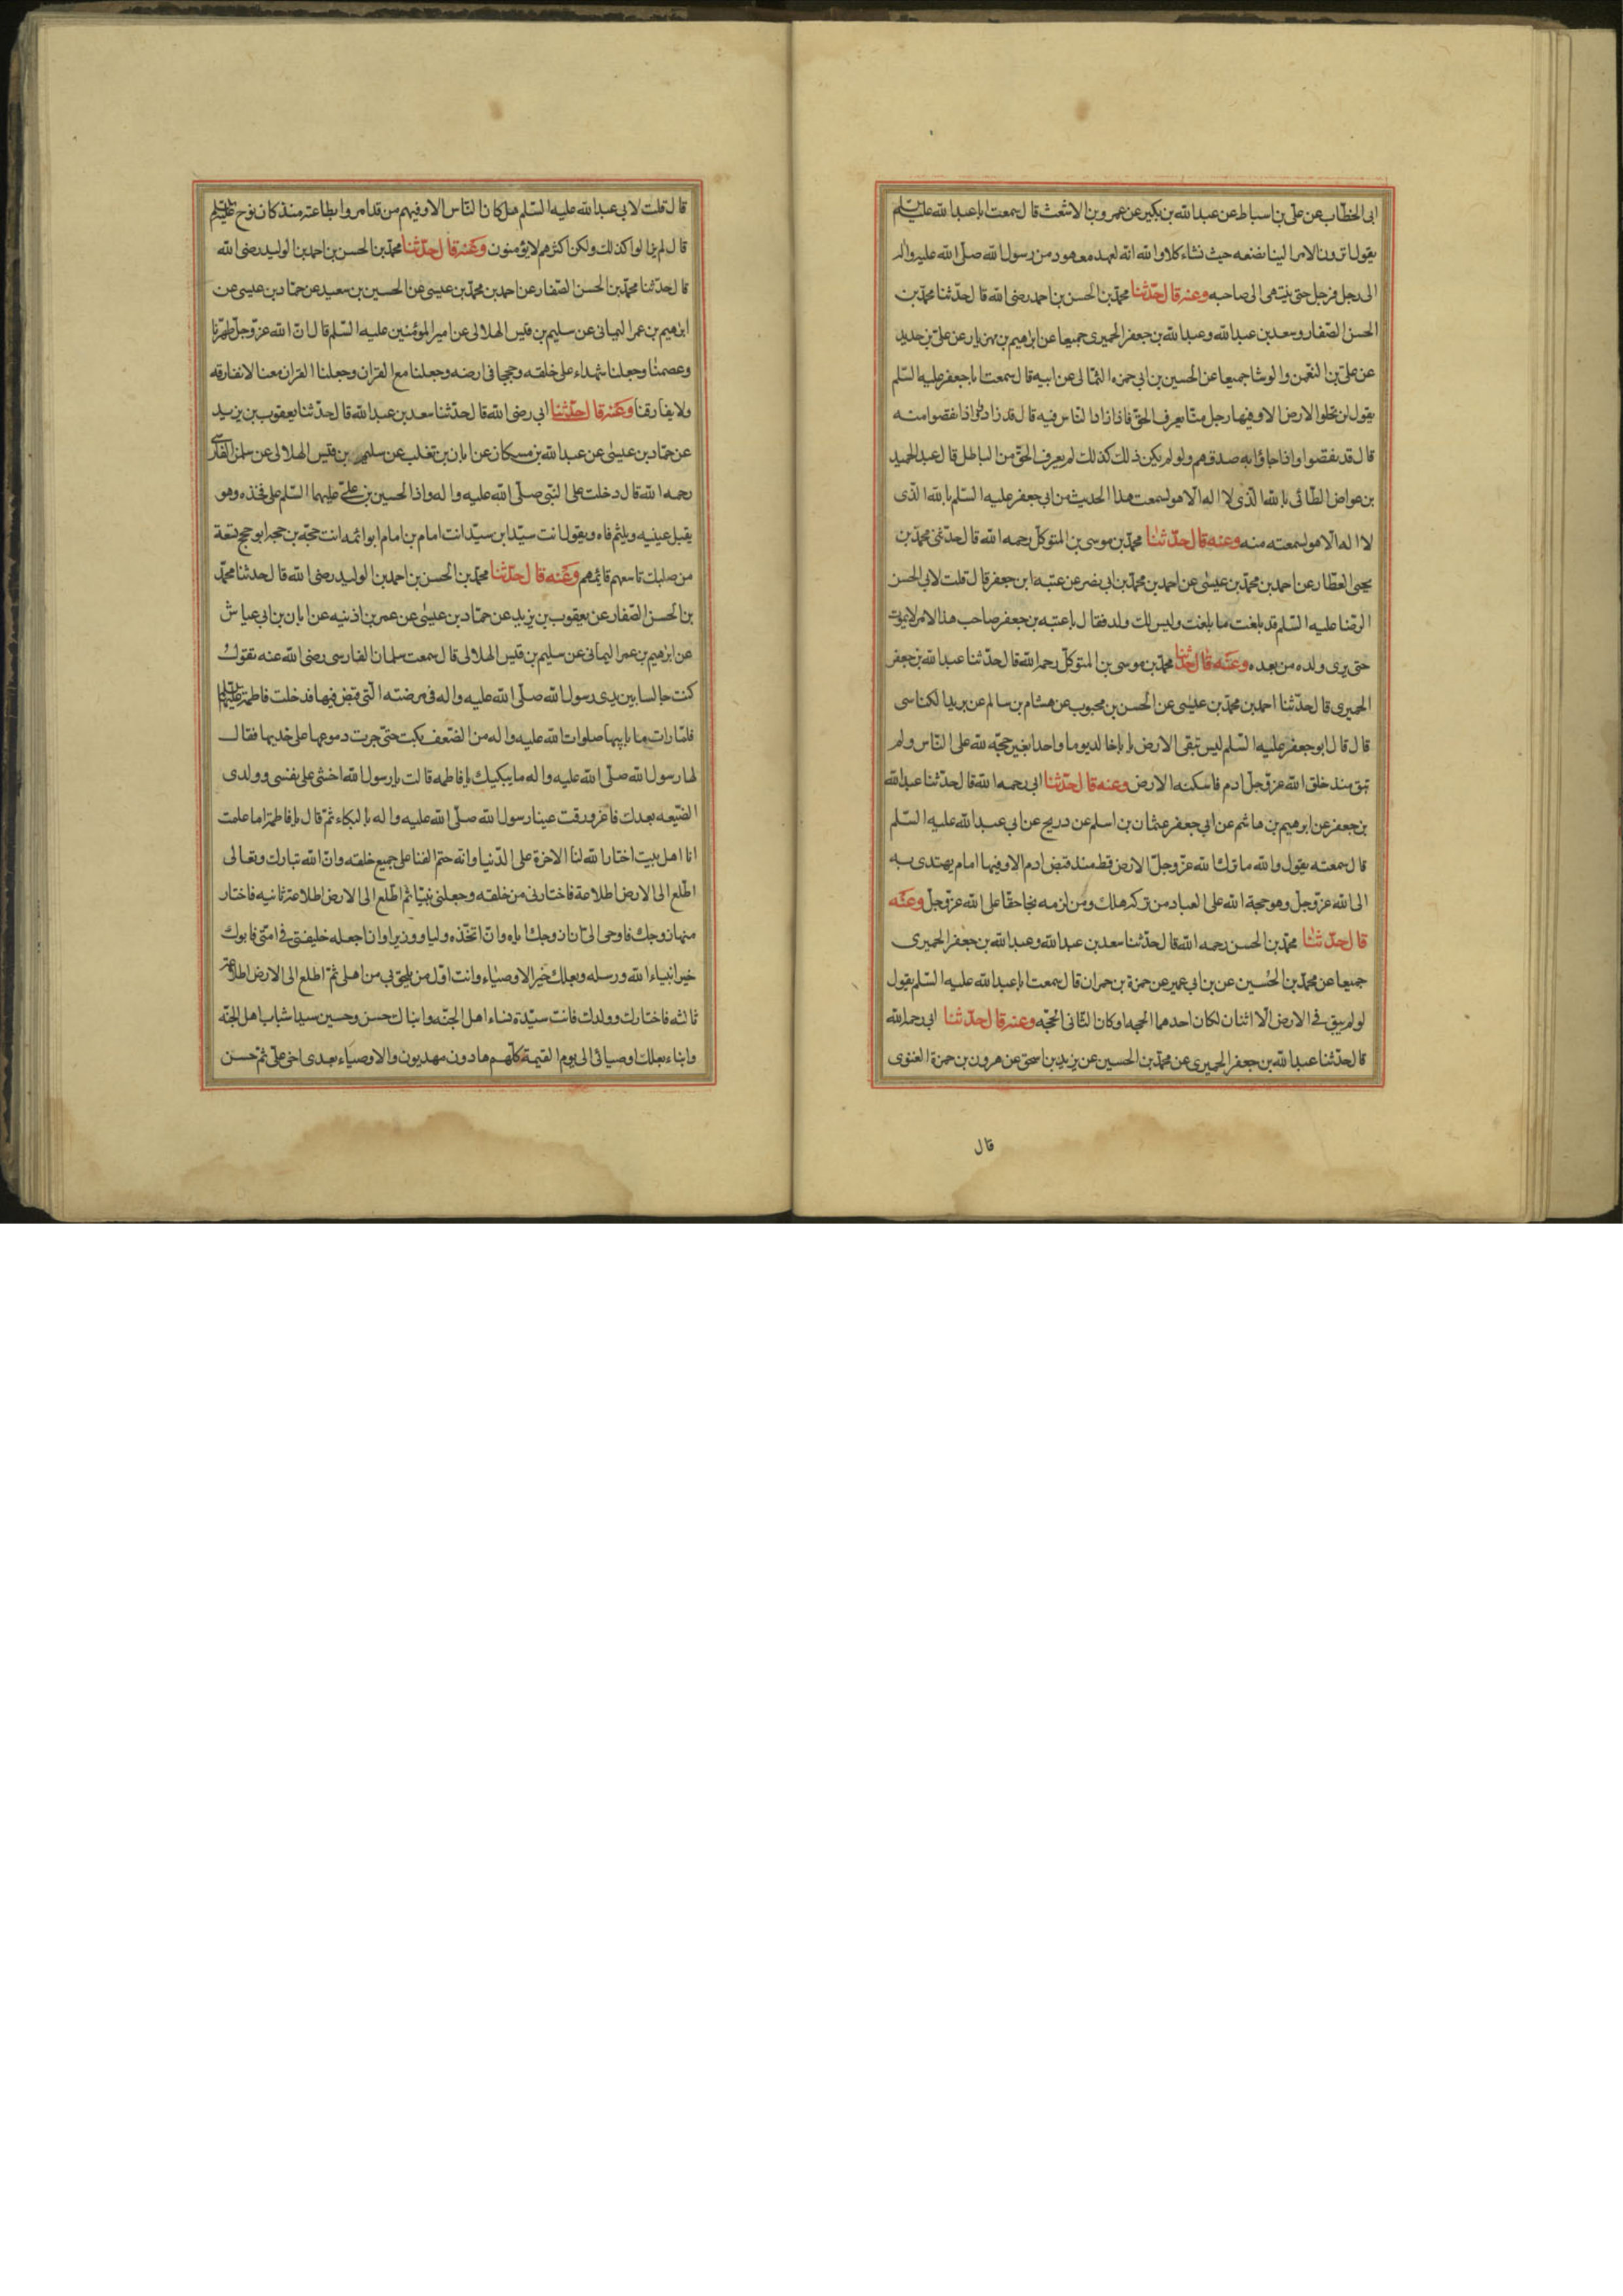 ابى الخطّاب عن علىّ بن اسباط عن عبدالله بن بكير عن عمرو بن الاشعث قال سمعت اباعبدالله عليه السّلم
يقول اترون الامر الينا نضعه حيث نشاء كلا والله انّه لعهد معهود من رسول الله صلّى الله عليه واله
الى رجل فرجل حتى ينتهى الى صاحبه وعنه قال حدّثنا محمّد بن الحسن بن احمد رضى الله قال حدّثنا محمّد بن
الحسن الصّفار وسعد بن عبدالله وعبدالله بن جعفر الحميرى جميعا عن ابرهيم بن مهزيار عن علىّ بن حديد
عن علىّ بن النعمن والوشا جميعا عن الحسين بن ابى حمزه الثمالى عن ابيه قال سمعت اباجعفر عليه السّلم
يقول لن تخلوا الارض الا وفيها رجل منّا يعرف الحقّ فاذا زادا النّاس فيه قال قد زادوا واذا نقصوا منه
قال قد نقصوا واذا جاؤا به صدقهم ولو لم يكن ذلك كذلك لم يعرف الحقّ من الباطل قال عبدالحميد
بن عواض الطّائى بالله الّذى لا اله الّا هو لسمعت هذا الحديث من ابى جعفر عليه السّلم بالله الّذى
لا اله الّا هو لسمعته منه وعنه قال حدّثنا محمّد بن موسى بن المتوكلّ رحمه الله قال حدّثنى محمّد بن
يحيى العطّار عن احمد بن محمّد بن عيسٰى عن احمد بن محمّد بن ابى نصر عن عتبه ابن جعفر قال قلت لابى الحسن
الرّضا عليه السّلم قد بلغت ما بلغت وليس لك ولد فقال يا عتبه بن جعفر صاحب هذا الامر لايموت
حتى يرى ولده من بعده وعنه قال حدّثنا محمّد بن موسى بن المتوكلّ رحمه الله قال حدّثنا عبدالله بن جعفر
الحميرى قال حدّثنا احمد بن محمّد بن عيسٰى عن الحسن بن محبوب عن هشام بن سالم عن بريد الكناسى
قال قال ابوجعفر عليه السّلم ليس تبقى الارض يا باخالد يوما واحدا بغير حجّه لله على النّاس ولم
تبق منذ خلق الله عزّوجلّ ادم فاسكنه الارض وعنه قال حدّثنا ابى رحمه الله قال حدّثنا عبدالله
بن جعفر عن ابرهيم بن هاشم عن ابى جعفر عن عثمان بن اسلم عن دريح عن ابى عبدالله عليه السّلم
قال سمعته يقول والله ما ترك الله عزّوجلّ الارض قط منذ قبض ادم الا وفيها امام يهتدى به
الى الله عزّوجلّ وهو حجة الله على العباد من تركه هلك ومن لزمه نجا حقّا على الله عزّوجلّ وعنه
قال حدّثنا محمّد بن الحسن رحمه الله قال حدّثنا سعد بن عبدالله وعبدالله بن جعفر الحميرى
جميعا عن محمّد بن الحسين عن بن ابى عمير عن حمزة بن حمران قال سمعت اباعبدالله عليه السّلم يقول
لو لم يبق فى الارض الّا اثنان لكان احدهما الحجه او كان الثّانى الحجّه وعنه قال حدّثنا ابى رحمه الله
قال حدّثنا عبدالله بن جعفر الحميرى عن محمّد بن الحسين عن يزيد بن اسحق عن هرون بن حمزة الغنوى
قال
قال قلت لابى عبدالله عليه السّلم هل كان النّاس الا وفيهم من قد امروا بطاعته منذ كان نوح عليه السّلم
قال لم يزالوا كذلك ولكن اكثرهم لا يؤمنون وعنه قال حدّثنا محمّد بن الحسن بن احمد بن الوليد رضى الله
قال حدّثنا محمّد بن الحسن الصّفار عن احمد بن محمّد بن عيسى عن الحسين بن سعيد عن حمّاد بن عيسى عن
ابرهيم بن عمر اليمانى عن سليم بن قيس الهلالى عن امير المؤمنين عليه السّلم قال انّ الله عزّوجلّ طهّرنا
وعصمنا وجعلنا شهداء على خلقه وحججا فى ارضه وجعلنا مع القران وجعلنا القران معنا لا نفارقه
ولا يفارقنا وعنه قال حدّثنا ابى رضى الله قال حدّثنا سعد بن عبدالله قال حدّثنا يعقوب بن يزيد
عن حمّاد بن عيسٰى عن عبدالله بن مسكان عن ابان بن تغلب عن سليم بن قيس الهلالى عن سلمن الفارسى
رحمه الله قال دخلت على النّبى صلّى الله عليه واله واذا الحسين بن علىّ عليهما السّلم على فخذه وهو
يقبل عينيه ويلثم فاه ويقول انت سيّد ابن سيّد انت امام بن امام ابو ائمه انت حجّه بن حجه ابو حجج تسعة
من صلبك تاسعهم قائمهم وعنه قال حدّثنا محمّد بن الحسن بن احمد بن الوليد رضى الله قال حدثنا محمّد
بن الحسن الصّفار عن يعقوب بن يزيد عن حمّاد بن عيسٰى عن عمر بن اذنيه عن ابان بن ابى عياش
عن ابرهيم بن عمر اليمانى عن سليم بن قيس الهلالى قال سمعت سلمان الفارسى رضى الله عنه يقول
كنت جالسا بين يدى رسول الله صلّى الله عليه واله فى مرضته الّتى قبض فيها فدخلت فاطمة عليها السّلم
فلمّا رات ما بابيها صلوات الله عليه واله من الضّعف بكت حتّى جرت دموعها على خديها فقال
لها رسول الله صلّى الله عليه واله ما يبكيك يا فاطمه قالت يا رسول الله اخشى على نفسى وولدى
الضّيعه بعدك فاغرورقت عينا رسول الله صلّى الله عليه واله بالبكاء ثمّ قال يا فاطمة اما علمت
انا اهل بيت اختار الله لنا الاخرة على الدّنيا وانّه حتم الفنا على جميع خلقه وانّ الله تبارك وتعالى
اطّلع الى الارض اطلاعة فاختارنى من خلقه وجعلنى نبيّا ثم اطّلع الى الارض اطلاعة ثانيه فاختار
منها زوجك فاوحى الىّ ان ازوجك اياه وان اتخّذه وليا ووزيرا وان اجعله خليفتى فى امّتى فابوك
خير انبياء الله ورسله وبعلك خير الاوصياء وانت اوّل من يلحق بى من اهلى ثمّ اطلع الى الارض اطلاعة
ثالثه فاختارك وولدك فانت سيّدة نساء اهل الجنّه وابناك حسن وحسين سيدا شباب اهل الجنّه
وابناء بعلك اوصيائى الى يوم القيمة كلّهم هادون مهديون والاوصياء بعدى اخى علىّ ثمّ حسن